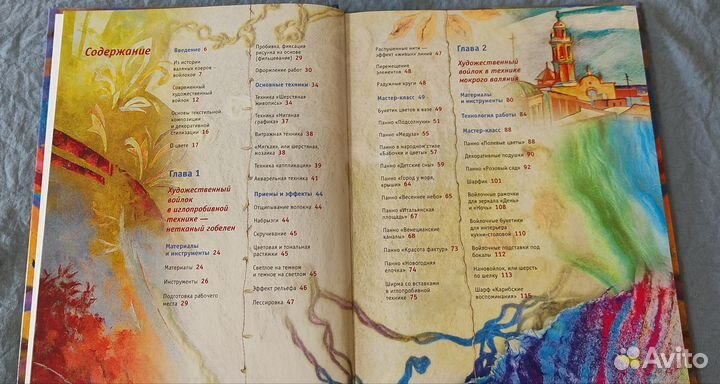 Содержание
Введение 6
Из истории
валяных ковров —
войлоков 7
Современный
художественный
войлок 12
Основы текстильной
композиции
и декоративной
стилизации 16
О цвете 17
Глава 1
Художественный
войлок
в иглопробивной
технике —
нетканый гобелен
Материалы
и инструменты 24
Материалы 24
Инструменты 26
Подготовка рабочего
места 29
Пробивка, фиксация
рисунка на основе
(фильцевание) 29
Оформление работ 30
Основные техники 34
Техника «Шерстяная
живопись» 34
Техника «Нитяная
графика» 37
Витражная техника 38
«Мягкая», или шерстяная,
мозаика 38
Техника «аппликация» 39
Акварельная техника 41
Приемы и эффекты 44
Отщипывание волокна 44
Набрызги 44
Скручивание 45
Цветовая и тональная
растяжки 45
Светлое на темном
и темное на светлом 45
Эффект рельефа 46
Лессировка 47
Распушенные нити —
эффект «живых» линий 47
Перемещение
элементов 48
Радужные круги 48
Мастер-класс 49
Букетик цветов в вазе 49
Панно «Подсолнухи» 51
Панно «Медуза» 55
Панно в народном стиле
«Бабочки и цветы» 57
Панно «Детские сны» 59
Панно «Город у моря,
крыши» 64
Панно «Весеннее небо» 65
Панно «Итальянская
площадь» 67
Панно «Венецианские
каналы» 68
Панно «Красота фактур» 73
Панно «Новогодняя
елочка» 74
Ширма со вставками
в иглопробивной
технике 75
Глава 2
Художественный
войлок в технике
мокрого валяния
Материалы
и инструменты 80
Технология работы 84
Мастер-класс 88
Панно «Полевые цветы» 88
Декоративные подушки 90
Панно «Розовый сад» 92
Шарфик 101
Войлочные рамочки
для зеркала «День»
и «Ночь» 108
Войлочные букетики
для интерьера
кухни-столовой 110
Войлочные подставки под
бокалы 112
Нановойлок, или шерсть
по шелку 113
Шарф «Карибские
воспоминания» 115
Avito